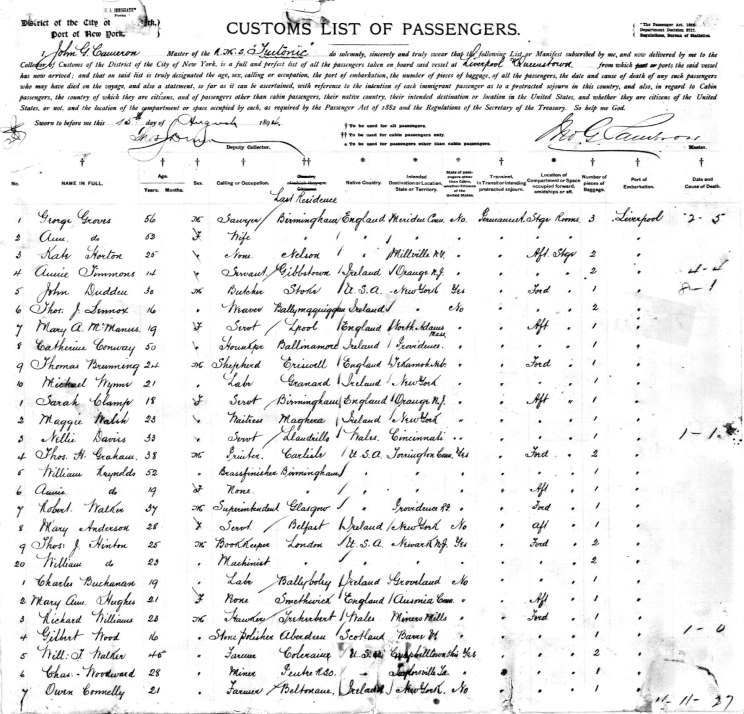 "U. S. IMMIGRANT"
District of the City of
Port of New York.
CUSTOMS LIST OF PASSENGERS.
"The Passenger Act, 1882"
I, John G. Cameron Master of the R.M.S. "Teutonic" do solemnly, sincerely and truly swear that the following List or Manifest subscribed by me, and now delivered by me to the
Collector of Customs of the District of the City of New York, is a full and perfect list of all the passengers taken on board said vessel at Liverpool & Queenstown from which port or ports the said vessel
has now arrived; and that on said list is truly designated the age, sex, calling or occupation, the port of embarkation, the number of pieces of baggage, of all the passengers, the date and cause of death of any such passengers
who may have died on the voyage, and also a statement, so far as it can be ascertained, with reference to the intention of each immigrant passenger as to a protracted sojourn in this country, and also, in regard to Cabin
passengers, the country of which they are citizens, and of passengers other than cabin passengers, their native country, their intended destination or location in the United States, and whether they are citizens of the United
States, or not, and the location of the compartment or space occupied by each, as required by the Passenger Act of 1882 and the Regulations of the Secretary of the Treasury. So help me God.
Sworn to before me this 15th day of August 189
Deputy Collector.
†† To be used for all passengers.
†† To be used for cabin passengers only.
* To be used for passengers other than cabin passengers.
Jno G Cameron
Master.
Last Residence
No. NAME IN FULL. Age. Years. Months. Sex. Calling or Occupation. Native Country. Intended Destination or Location, State or Territory. Transient, In Transit or intending protracted sojourn. Location of Compartment or Space occupied forward, amidships or aft. Number of pieces of Baggage. Port of Embarkation. Date and Cause of Death.
1 George Groves 56 M Sawyer Birmingham England Meriden Conn. No. Permanent Stge Rooms 3 Liverpool 2-5
2 Ann do 53 F Wife " " " " "
3 Kate Horton 25 " None Nelson " Millville N.Y. " " Aft. Stge 2
4 Annie Simmons 14 " Servant Gibbstown Ireland Orange N.J. " " " 2 " 4-4
5 John 30 M Butcher Stoke U.S.A. New York Yes " Ford " 1 " 8-1
6 Thos. J. Lennox 16 " Weaver Ireland " No " " 2
7 Mary A. McManus 19 F Servt Lpool England North Adams Mass. " " Aft " 1
8 Catherine Conway 50 " Ballinamore Ireland Providence. " " " 1
9 Thomas Brunning 24 M Shepherd Eriswell England Tekamah Neb. " " Ford " 1
10 Michael Wynn 21 " Labr Granard Ireland New York " " " 1
1 Sarah Clamp 18 F Servt Birmingham England Orange N.J. " " Aft " 1
2 Maggie Walsh 23 " Waitress Maghera Ireland New York " " " 1
3 Nellie Davis 33 " Servt Llandrillo Wales. Cincinnati " " " 1 " 1-1
4 Thos. H. Graham. 38 M Printer Carlisle U.S.A. Torrington Conn. Yes " Ford " 2
5 William Reynolds 52 " Brassfinisher Birmingham " " " " " 1
6 Annie do 19 F None. " " " " " Aft 1
7 Robert Walker 37 M Superintendent Glasgow " Providence R.I. " " Ford " 1
8 Mary Anderson 28 F Servt Belfast Ireland New York No " Aft " 1
9 Thos. J. Hinton 25 M Bookkeeper London U.S.A. Newark N.J. Yes " Ford " 2
20 William do 23 " Machinist " " " " " " 2
1 Charles Buchanan 19 " Labr Ballyboley Ireland Groveland No " " 1
2 Mary Ann Hughes 21 F None Smethwick England Ansonia Conn. " " Aft " 1
3 Richard Williams 23 M Hawker Wales Miners Mills " " Ford " 1
4 Gilbert Wood 16 " Stone polisher Aberdeen Scotland Barre Vt " " " 1 " 1-0
5 Will. J. Walker 45 " Farmer Coleraine U.S.A. Yes " " 2
6 Chas. Woodward 28 " Miner " " " " 1
7 Owen Connelly 21 " Farmer Ireland New York No " " 1
11-11-27